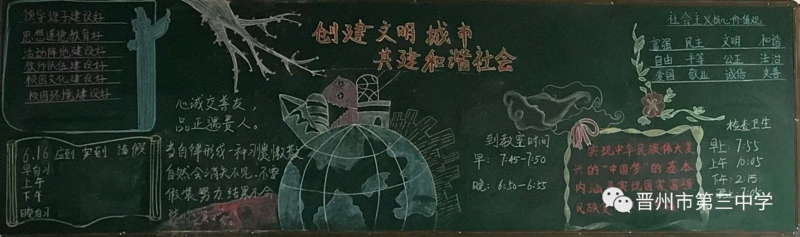 领导班子建设好
思想道德教育好
活动阵地建设好
教师队伍建设好
校园文化建设好
校园环境建设好
6.16 应到 实到 请假
早自习
上午
下午
晚自习
创建文明城市
共建和谐社会
心诚交善友，
品正遇贵人。
当自律形成一种习惯懒散
自然会消失不见。不要
假装努力 结果不会
到教室时间
早：7:45-7:50
晚：6:50-6:55
社会主义核心价值观
富强 民主 文明 和谐
自由 平等 公正 法治
爱国 敬业 诚信 友善
实现中华民族伟大复
兴的"中国梦"的基本
内涵是实现国家富强
民族
检查卫生
早上 7:55
上午 10:05
下午：2:15
7:05
晋州市第三中学